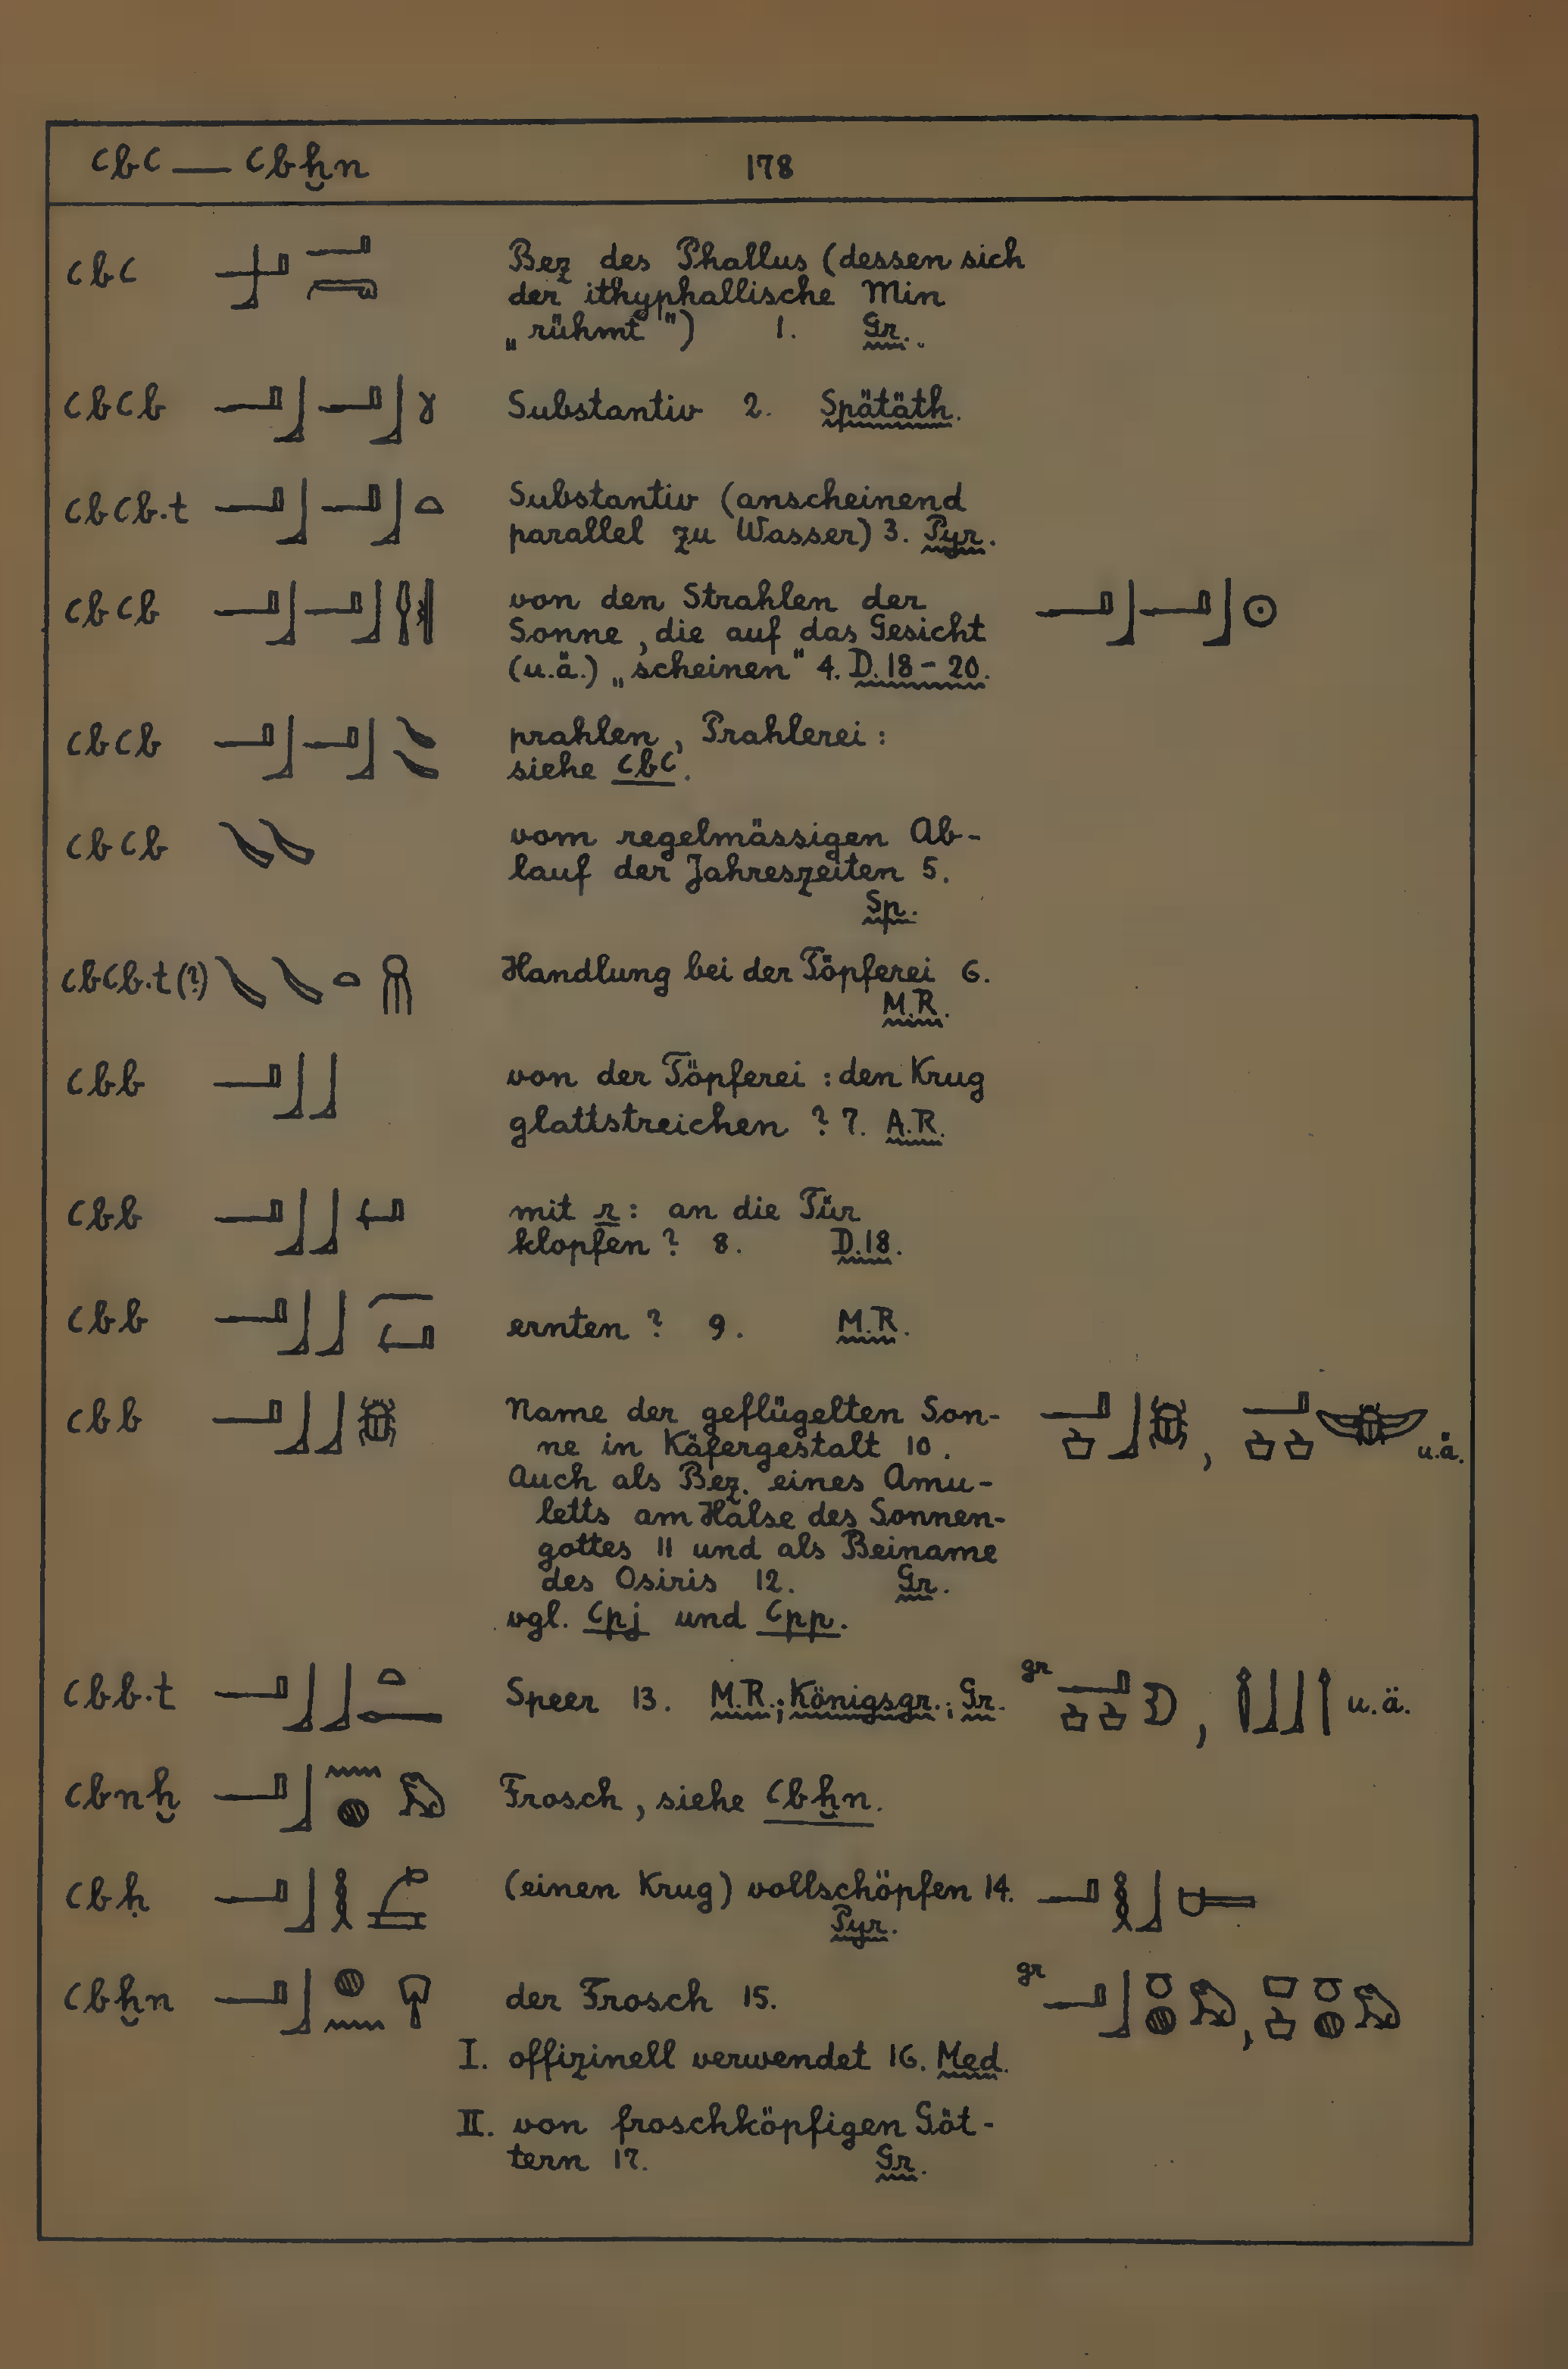 ꜥbꜥ — ꜥbḫn 178
ꜥbꜥ Bez des Phallus (dessen sich
der ithyphallische Min
„rühmt") 1. Gr.
ꜥbꜥb Substantiv 2. Spätäth.
ꜥbꜥb.t Substantiv (anscheinend
parallel zu Wasser) 3. Pyr.
ꜥbꜥb von den Strahlen der
Sonne, die auf das Gesicht
(u.ä.) „scheinen" 4. D.18-20.
ꜥbꜥb prahlen, Prahlerei:
siehe ꜥbꜥ.
ꜥbꜥb vom regelmässigen Ab-
lauf der Jahreszeiten 5.
Sp.
ꜥbꜥb.t (?) Handlung bei der Töpferei 6.
M.R.
ꜥbb von der Töpferei: den Krug
glattstreichen? 7. A.R.
ꜥbb mit r: an die Tür
klopfen? 8. D.18.
ꜥbb ernten? 9. M.R.
ꜥbb Name der geflügelten Son-
ne in Käfergestalt 10. , u.ä.
Auch als Bez. eines Amu-
letts am Halse des Sonnen-
gottes 11 und als Beiname
des Osiris 12. Gr.
vgl. ꜥpj und ꜥpp.
ꜥbb.t Speer 13. M.R.; Königsgr.; Gr. gr , u.ä.
ꜥbnḫ Frosch, siehe ꜥbḫn.
ꜥbḥ (einen Krug) vollschöpfen 14.
Pyr.
ꜥbḫn der Frosch 15. gr ,
I. offizinell verwendet 16. Med.
II. von froschköpfigen Göt-
tern 17. Gr.